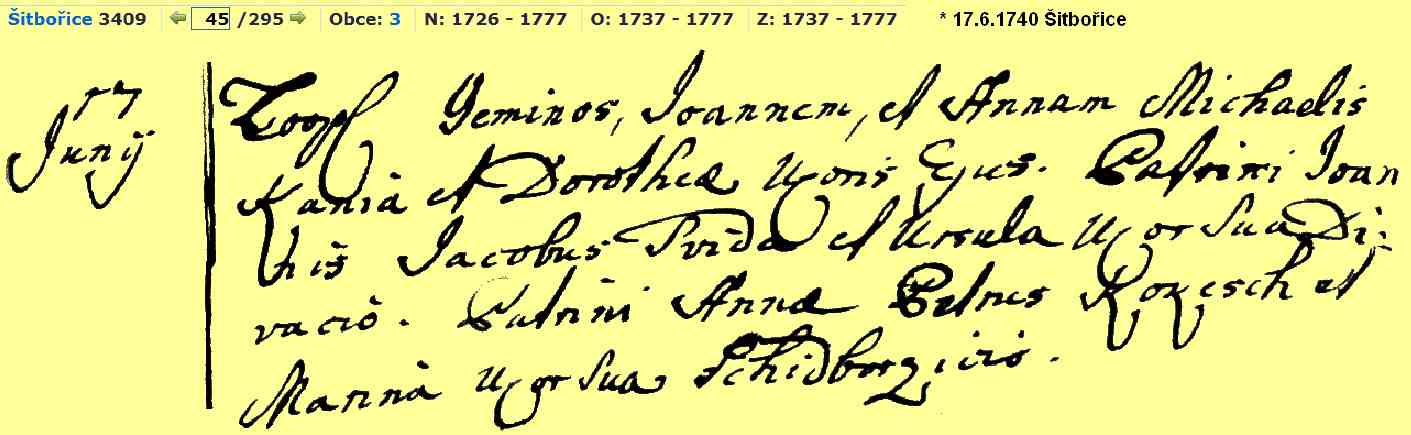 Šitbořice 3409 45 /295 Obce: 3 N: 1726 - 1777 O: 1737 - 1777 Z: 1737 - 1777 * 17.6.1740 Šitbořice
17 Junij
Geminos, Joannem, et Annam Michaelis
Kania et Dorotheæ Uxoris Ejus. Patrini Joan
nis Jacobus Svida et Ursula Uxor Sua Di:
vacio. Patrini Annæ Kozesch et
Marina Uxor Sua Schidborzicio.